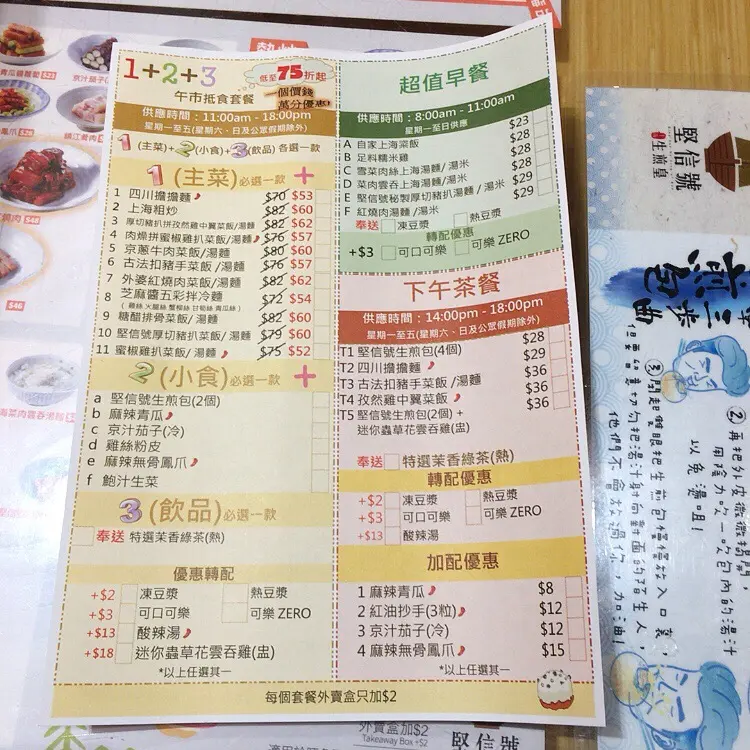 1+2+3
低至75折起
一個價錢
萬分優惠!
午市抵食套餐
供應時間：11:00am - 18:00pm
星期一至五(星期六、日及公眾假期除外)
1(主菜)+2(小食)+3(飲品) 各選一款
1 (主菜) 必選一款 +
1 四川擔擔麵 $70 $53
2 上海粗炒 $82 $60
3 厚切豬扒拼孜然雞中翼菜飯/湯麵 $82 $62
4 肉燥拼蜜椒雞扒菜飯/湯麵 $76 $57
5 京蔥牛肉菜飯/湯麵 $80 $60
6 古法扣豬手菜飯/湯麵 $76 $57
7 外婆紅燒肉菜飯/湯麵 $82 $62
8 芝麻醬五彩拌冷麵 $72 $54
(雞絲 火腿絲 蟹柳絲 甘筍絲 青瓜絲)
9 糖醋排骨菜飯/湯麵 $82 $60
10 堅信號厚切豬扒菜飯/湯麵 $79 $60
11 蜜椒雞扒菜飯/湯麵 $75 $52
2 (小食) 必選一款 +
a 堅信號生煎包(2個)
b 麻辣青瓜
c 京汁茄子(冷)
d 雞絲粉皮
e 麻辣無骨鳳爪
f 鮑汁生菜
3 (飲品) 必選一款
奉送 特選茉香綠茶(熱)
優惠轉配
+$2 凍豆漿 熱豆漿
+$3 可口可樂 可樂 ZERO
+$13 酸辣湯
+$18 迷你蟲草花雲吞雞(盅)
*以上任選其一
超值早餐
供應時間：8:00am - 11:00am
星期一至日供應
A 自家上海粢飯 $23
B 足料糯米雞 $28
C 雪菜肉絲上海湯麵/ 湯米 $28
D 菜肉雲吞上海湯麵/ 湯米 $28
E 堅信號秘製厚切豬扒湯麵/湯米 $29
F 紅燒肉湯麵 /湯米 $29
奉送 凍豆漿 熱豆漿
轉配優惠
+$3 可口可樂 可樂 ZERO
下午茶餐
供應時間：14:00pm - 18:00pm
星期一至五(星期六、日及公眾假期除外)
T1 堅信號生煎包(4個) $28
T2 四川擔擔麵 $29
T3 古法扣豬手菜飯 /湯麵 $36
T4 孜然雞中翼菜飯 $36
T5 堅信號生煎包(2個) + $36
迷你蟲草花雲吞雞(盅)
奉送 特選茉香綠茶(熱)
轉配優惠
+$2 凍豆漿 熱豆漿
+$3 可口可樂 可樂 ZERO
+$13 酸辣湯
加配優惠
1 麻辣青瓜 $8
2 紅油抄手(3粒) $12
3 京汁茄子(冷) $12
4 麻辣無骨鳳爪 $15
*以上任選其一
每個套餐外賣盒只加$2
外賣盒加$2
Takeaway Box +$2
堅信號
堅信號
生煎皇
②再把外皮微微揭開，
用陰力吹一吹包內的湯汁
以免湯咀!
③閉起雙眼把生煎包慢慢放入口裏，
但無如何切勿把湯汁射向對面的陌生人，
他們不會放過你，加油!